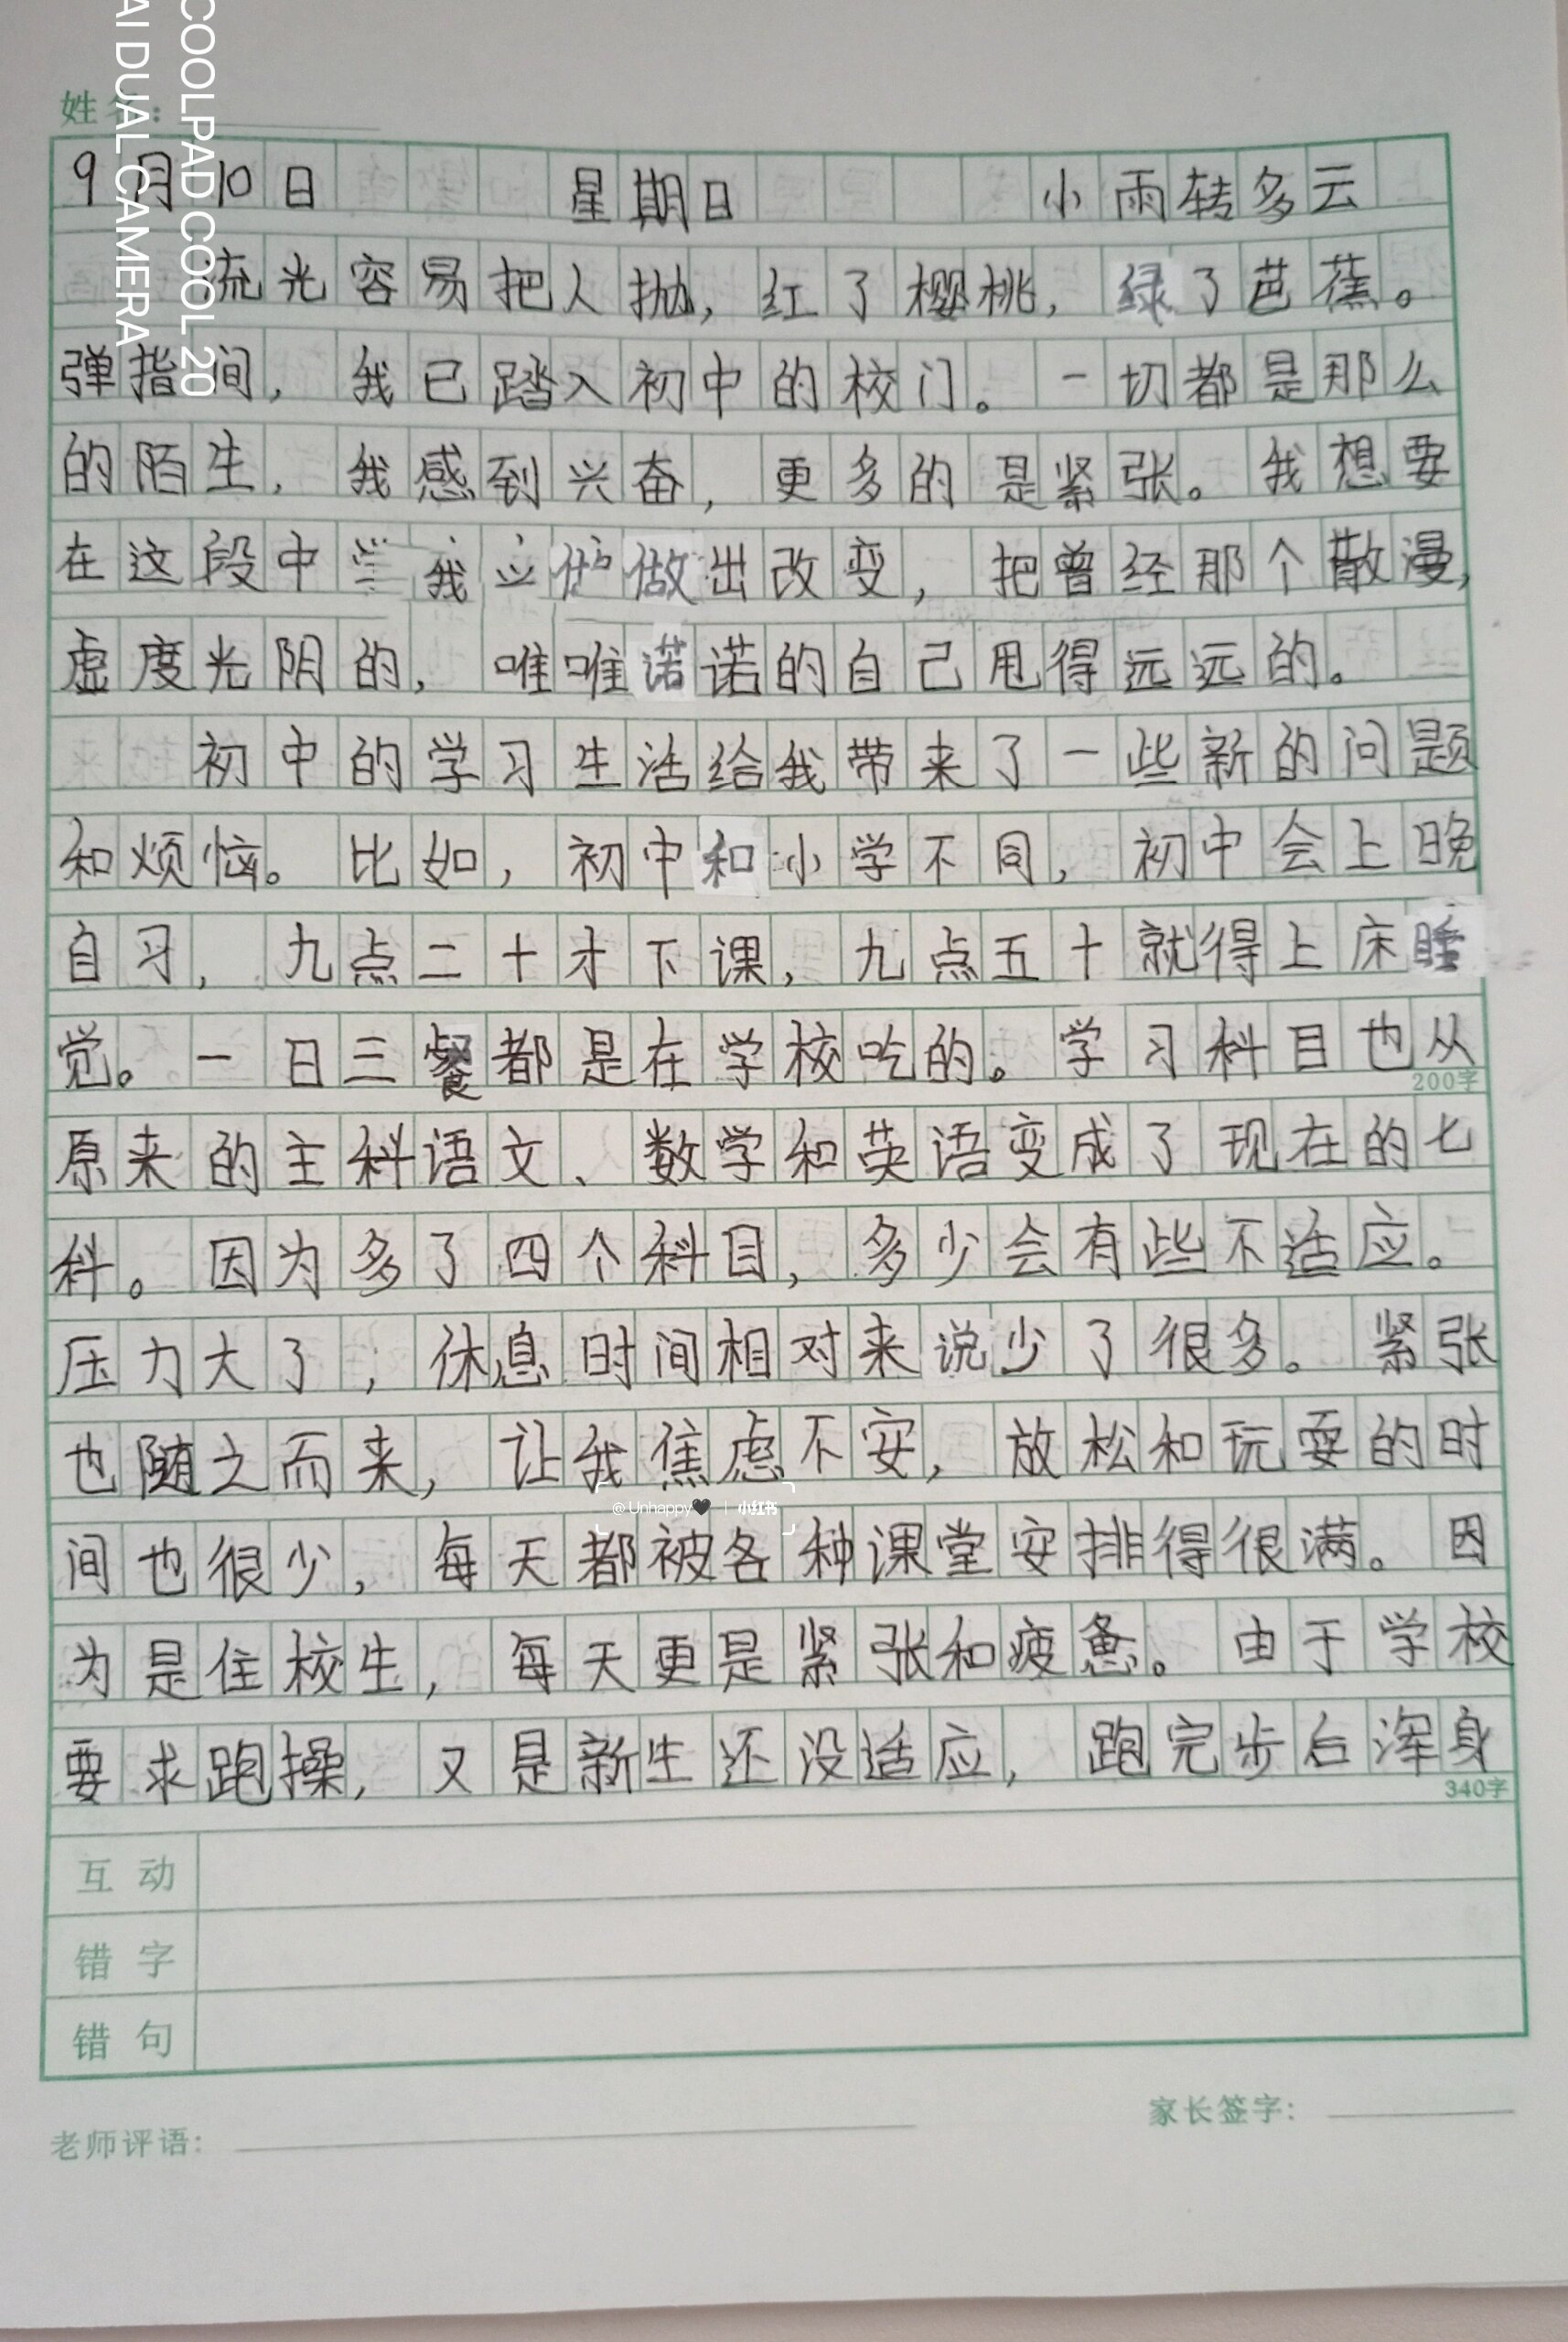 COOLPAD COOL 20
AI DUAL CAMERA
姓名：
9月10日 星期日 小雨转多云
流光容易把人抛，红了樱桃，绿了芭蕉。
弹指间，我已踏入初中的校门。一切都是那么
的陌生，我感到兴奋，更多的是紧张。我想要
在这段中 我 做出改变，把曾经那个散漫，
虚度光阴的，唯唯诺诺的自己甩得远远的。
初中的学习生活给我带来了一些新的问题
和烦恼。比如，初中和小学不同，初中会上晚
自习，九点二十才下课，九点五十就得上床睡
觉。一日三餐都是在学校吃的。学习科目也从
200字
原来的主科语文、数学和英语变成了现在的七
科。因为多了四个科目，多少会有些不适应。
压力大了，休息时间相对来说少了很多。紧张
也随之而来，让我焦虑不安，放松和玩耍的时
@Unhappy🖤 | 小红书
间也很少，每天都被各种课堂安排得很满。因
为是住校生，每天更是紧张和疲惫。由于学校
要求跑操，又是新生还没适应，跑完步后浑身
340字
互动
错字
错句
老师评语：
家长签字：